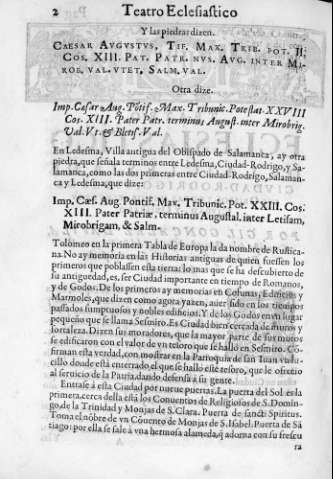 2 Teatro Eclesiastico
Y las piedras dizen.
CAESAR AVGVSTVS, TIF. MAX. TRIB. POT. II.
COS. XIII. PAT. PATR. NVS. AVG. INTER MI-
ROE, VAL. VTET, SALM, VAL.
Otra dize.
Imp. Cæsar Aug. Põtif. Max. Tribunic. Potestat. XXVIII
Cos. XIII. Pater Patr. terminus August. inter Mirobrig.
Val. Vt. & Bletis. Val.
En Ledesma, Villa antigua del Obispado de Salamanca, ay otra
piedra, que señala terminos entre Ledesma, Ciudad-Rodrigo, y Sa-
lamanca, como las dos primeras entre Ciudad-Rodrigo, Salaman-
ca y Ledesma, que dize:
Imp. Cæs. Aug. Pontif. Max. Tribunic. Pot. XXIII. Cos.
XIII. Pater Patriæ, terminus Augustal. inter Letisam,
Mirobrigam, & Salm-
Tolomeo en la primera Tabla de Europa la da nombre de Rustica-
na. No ay memoria en las Historias antiguas de quien fuessen los
primeros que poblassen esta tierra: lo mas que se ha descubierto de
su antiguedad, es, ser Ciudad importante en tiempo de Romanos,
y de Godos. De los primeros ay memorias en Colunas, Edificios y
Marmoles, que dizen como agora yazen, auer sido en los tiempos
passados sumptuosos y nobles edificios. Y de los Godos en vn lugar
pequeño que se llama Sesmiro. Es Ciudad bien cercada de muros y
fortaleza. Dizen sus moradores, que la mayor parte de sus muros
se edificaron con el valor de vn tesoro que se halló en Sesmiro. Cõ-
firman esta verdad, con mostrar en la Parroquia de san Iuan vn lu-
cillo donde està enterrado el que se halló este tesoro, que le ofrecio
al seruicio de la Patria, dando defensa à su gente.
Entrase à esta Ciudad por nueue puertas. La puerta del Sol es la
primera, cerca della està los Conuentos de Religiosos de S. Domin-
go, de la Trinidad y Monjas de S. Clara. Puerta de sancti Spiritus.
Toma el nõbre de vn Cõuento de Monjas de S. Isabel. Puerta de Sã
tiago: por ella se sale à vna hermosa alameda, q̃ adorna con su frescu
ra